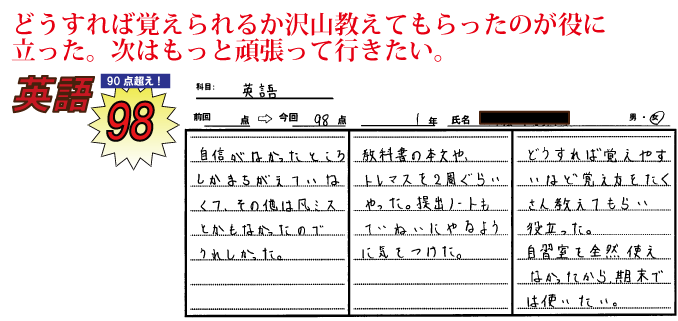 どうすれば覚えられるか沢山教えてもらったのが役に
立った。次はもっと頑張って行きたい。
英語
90点超え！
98
科目：
英語
前回 点 ⇨ 今回 98 点 1 年 氏名 男・女
自信がなかったところ
しかまちがえていな
くて、その他は凡ミス
とかもなかったので
うれしかった。
教科書の本文や、
トレマスを2周ぐらい
やった。提出ノートも
ていねいにやるよう
に気をつけた。
どうすれば覚えやす
いなど覚え方をたく
さん教えてもらい
役立った。
自習室を全然使え
なかったから、期末で
は使いたい。